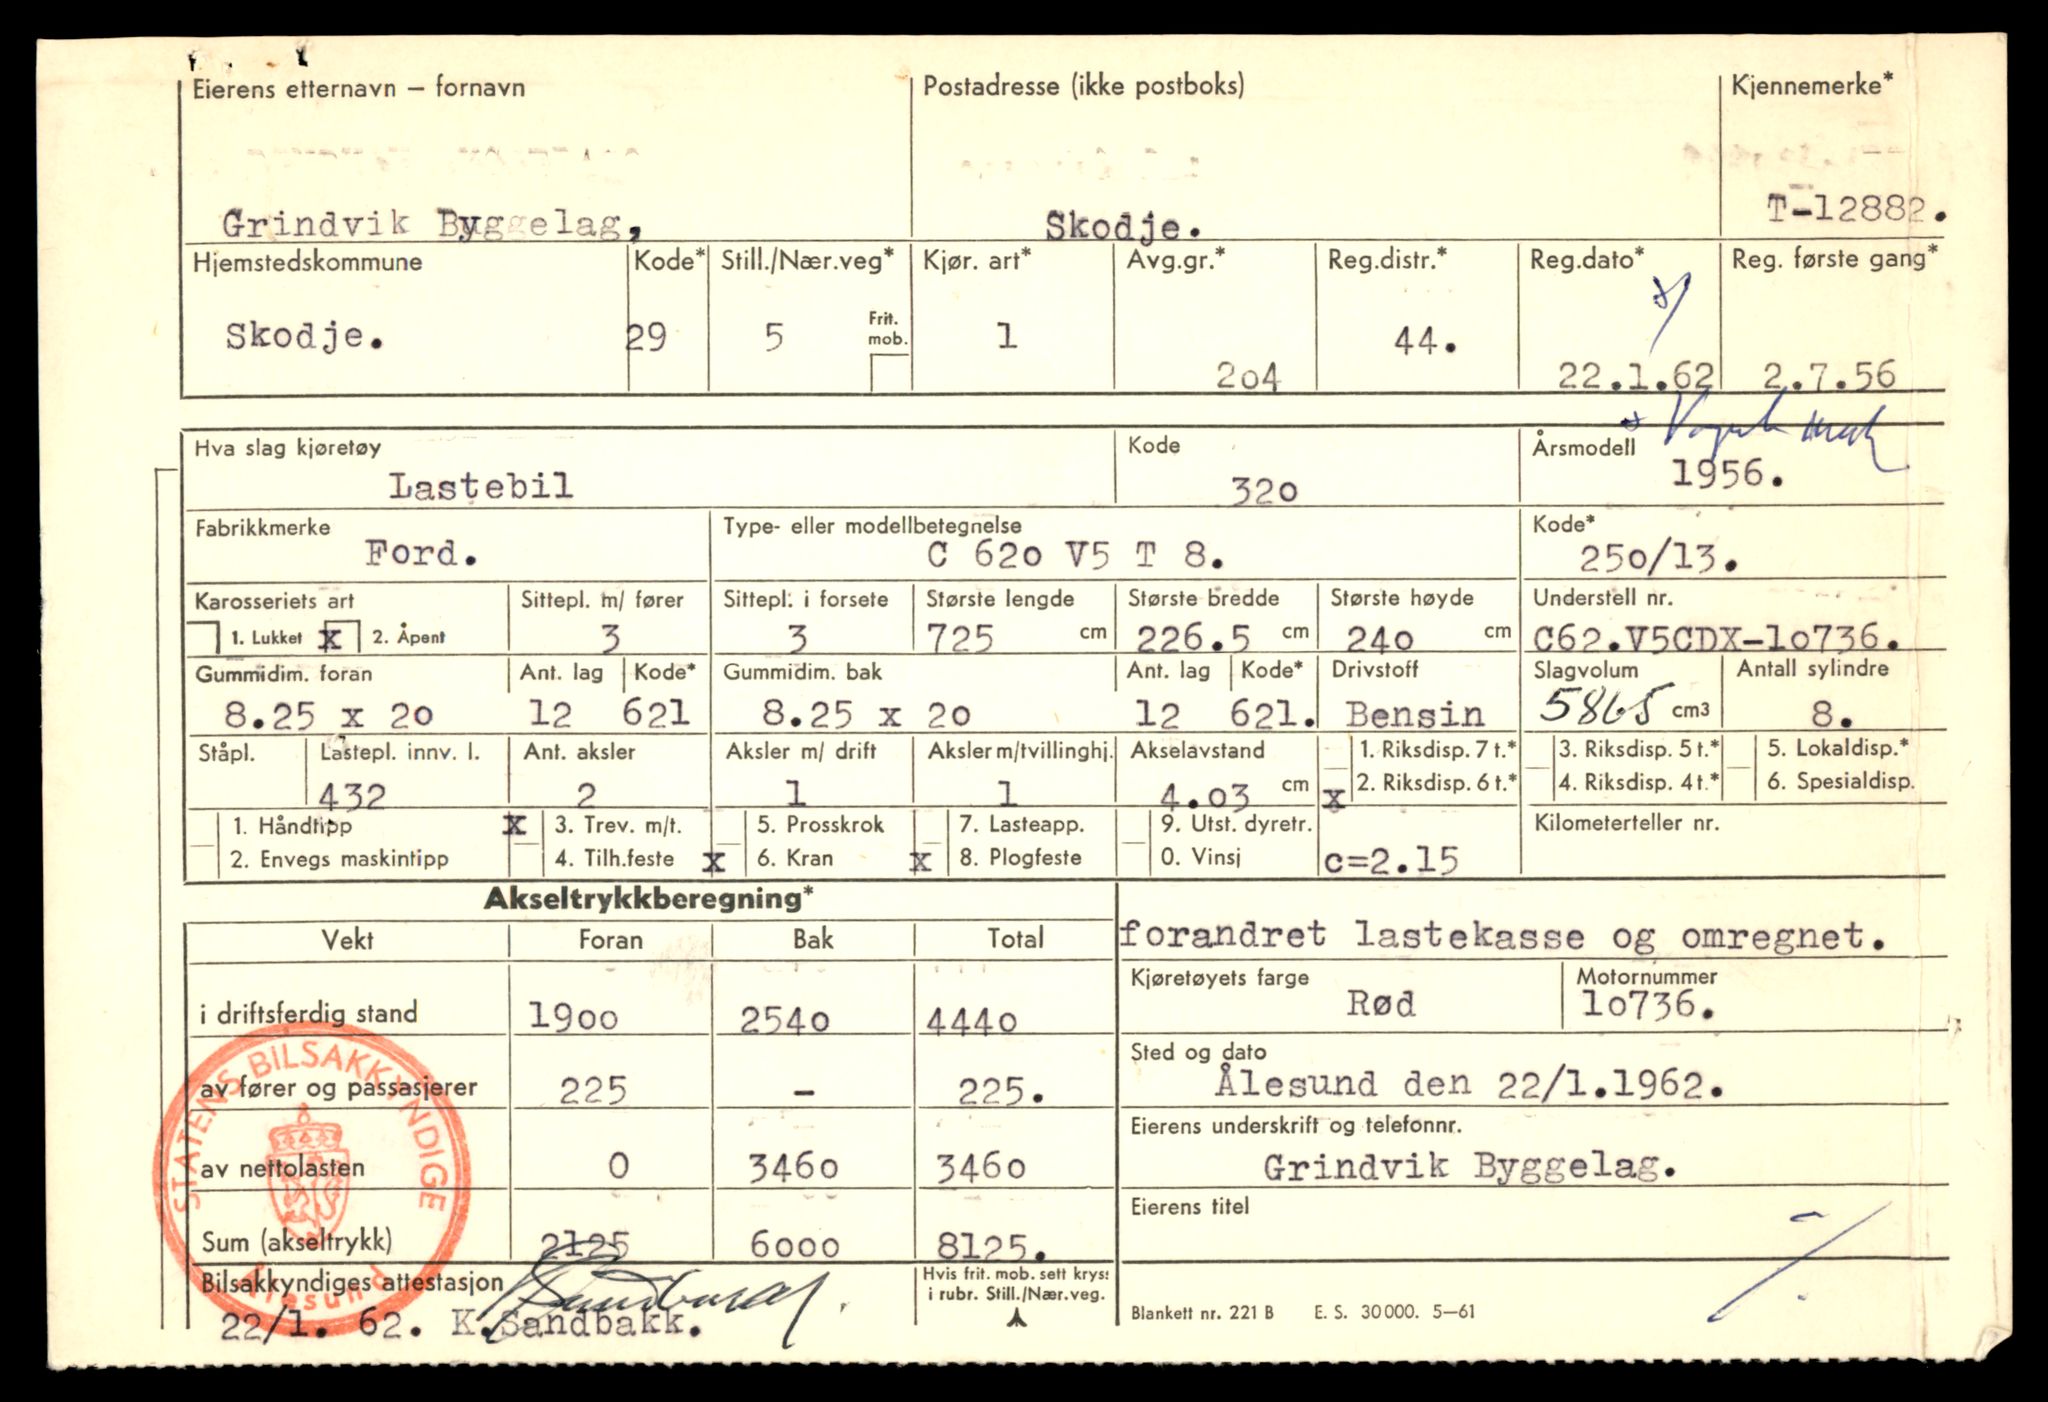 Eierens etternavn – fornavn Postadresse (ikke postboks) Kjennemerke*
Grindvik Byggelag, Skodje. T-12882.
Hjemstedskommune Kode* Still./Nær.veg* Kjør. art* Avg.gr.* Reg.distr.* Reg.dato* Reg. første gang*
Skodje. 29 5 Frit. mob. 1 204 44. 22.1.62 2.7.56
Hva slag kjøretøy Kode Årsmodell
Lastebil 320 1956.
Fabrikkmerke Type- eller modellbetegnelse Kode*
Ford. C 620 V5 T 8. 250/13.
Karosseriets art Sittepl. m/ fører Sittepl. i forsete Største lengde Største bredde Største høyde Understell nr.
1. Lukket x 2. Åpent 3 3 725 cm 226.5 cm 240 cm C62.V5CDX-10736.
Gummidim. foran Ant. lag Kode* Gummidim. bak Ant. lag Kode* Drivstoff Slagvolum Antall sylindre
8.25 x 20 12 621 8.25 x 20 12 621. Bensin 5865 cm3 8.
Ståpl. Lastepl. innv. l. Ant. aksler Aksler m/ drift Aksler m/tvillinghj. Akselavstand 1. Riksdisp. 7 t.* 3. Riksdisp. 5 t.* 5. Lokaldisp.*
432 2 1 1 4.03 cm x 2. Riksdisp. 6 t.* 4. Riksdisp. 4 t.* 6. Spesialdisp.
1. Håndtipp x 3. Trev. m/t. 5. Prosskrok 7. Lasteapp. 9. Utst. dyretr. Kilometerteller nr.
2. Envegs maskintipp 4. Tilh.feste x 6. Kran x 8. Plogfeste 0. Vinsj c=2.15
Akseltrykkberegning*
Vekt Foran Bak Total forandret lastekasse og omregnet.
Kjøretøyets farge Motornummer
i driftsferdig stand 1900 2540 4440 Rød 10736.
Sted og dato
av fører og passasjerer 225 - 225. Ålesund den 22/1.1962.
Eierens underskrift og telefonnr.
av nettolasten 0 3460 3460 Grindvik Byggelag.
Eierens titel
Sum (akseltrykk) 2125 6000 8125.
Bilsakkyndiges attestasjon Hvis frit. mob. sett kryss
i rubr. Still./Nær.veg.
22/1. 62. K.Sandbakk. Blankett nr. 221 B E. S. 30000. 5–61
STATENS BILSAKKYNDIGE
Ålesund